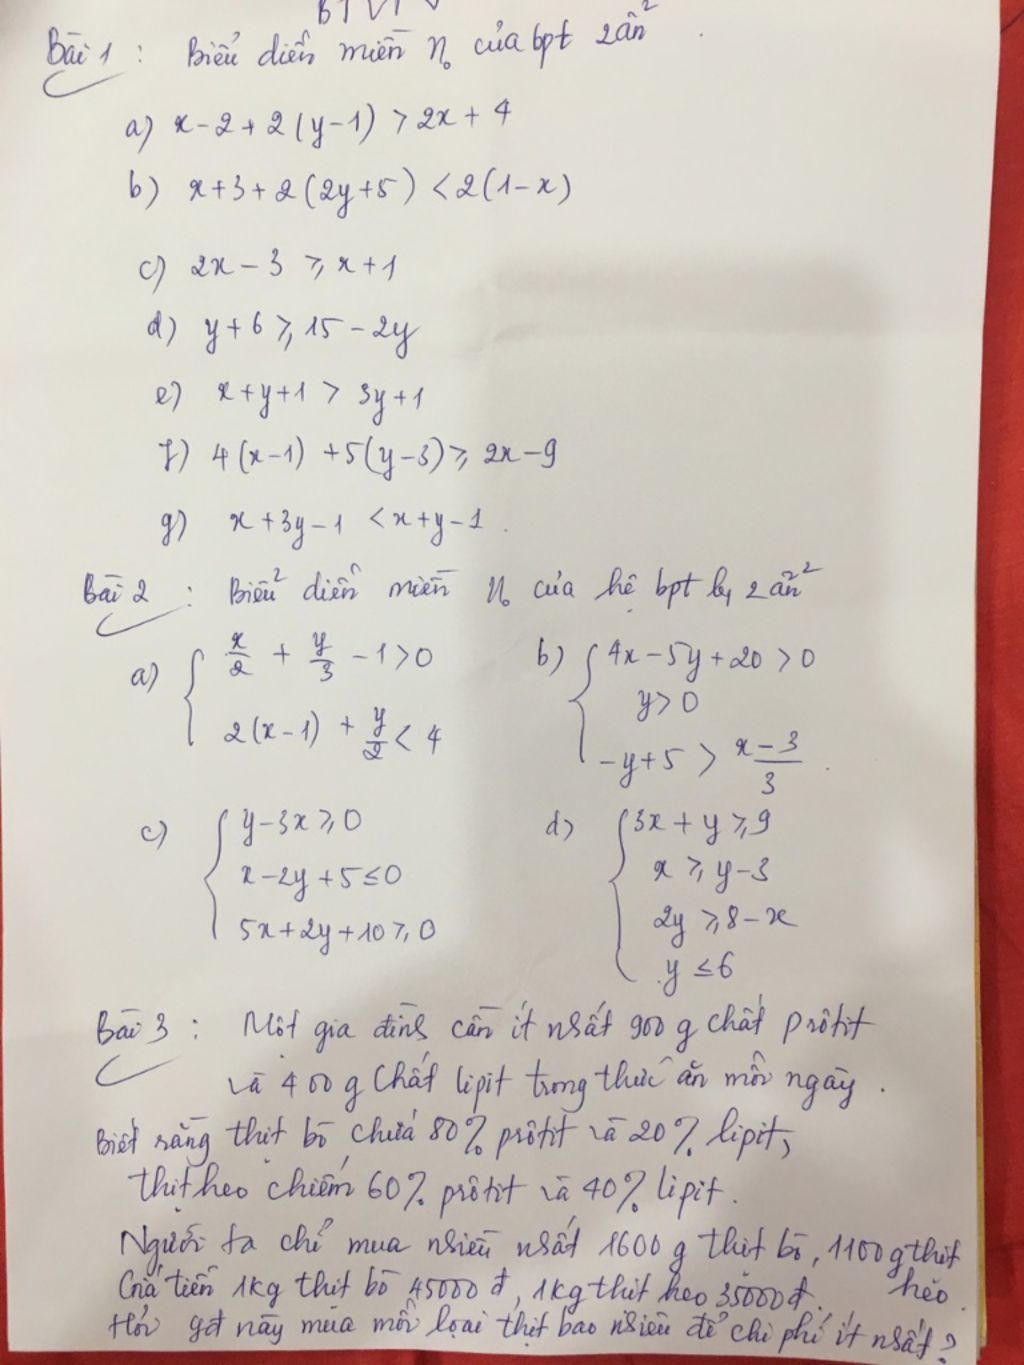 BTVN
Bài 1 : Biểu diễn miền n₀ của bpt 2ẩn
a) x-2+2(y-1) > 2x+4
b) x+3+2(2y+5) < 2(1-x)
c) 2x-3 ⩾ x+1
d) y+6 ⩾ 15-2y
e) x+y+1 > 3y+1
f) 4(x-1) +5(y-3) ⩾ 2x-9
g) x+3y-1 < x+y-1 .
Bài 2 : Biểu diễn miền n₀ của hệ bpt b₁ 2ẩn
a) { x/2 + y/3 -1 > 0
2(x-1) + y/2 < 4
b) { 4x-5y+20 > 0
y > 0
-y+5 > (x-3)/3 .
c) { y-3x ⩾ 0
x-2y+5 ≤ 0
5x+2y+10 ⩾ 0
d) { 3x+y ⩾ 9
x ⩾ y-3
2y ⩾ 8-x
y ≤ 6
Bài 3 : Một gia đình cần ít nhất 900 g chất prôtit
và 400 g chất lipit trong thức ăn mỗi ngày .
Biết rằng thịt bò chứa 80% prôtit và 20% lipit,
thịt heo chiếm 60% prôtit và 40% lipit.
Người ta chỉ mua nhiều nhất 1600 g thịt bò, 1100 g thịt
heo.
Giá tiền 1kg thịt bò 45000 đ, 1kg thịt heo 35000 đ.
Hỏi gđ này mua mỗi loại thịt bao nhiêu để chi phí ít nhất?